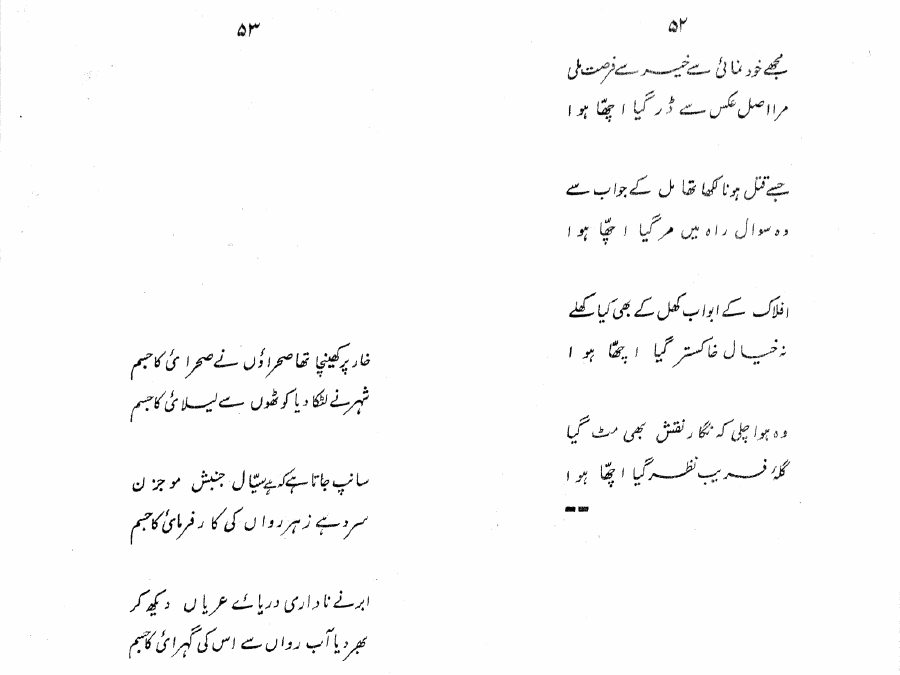 ۵۲
مجھے خود نمائی سے خیر سے فرصت ملی
مرا اصل عکس سے ڈر گیا اچھّا ہوا
جسے قتل ہونا لکھا تھا مل کے جواب سے
وہ سوال راہ میں مر گیا اچھّا ہوا
افلاک کے ابواب کھل کے بھی کیا کھلے
نہ خیال خاکستر گیا اچھّا ہوا
وہ ہوا چلی کہ نگار نقش بھی مٹ گیا
گلۂ فریب نظر گیا اچھّا ہوا
۵۳
خار پر کھینچا تھا صحراؤں نے صحرائی کا جسم
شہر نے لٹکا دیا کوٹھوں سے لیلائی کا جسم
سانپ جاتا ہے کہ ہے سیّال جنبش موجزن
سرد ہے زہر رواں کی کارفرمائی کا جسم
ابر نے ناداری دریائے عریاں دیکھ کر
بھر دیا آب رواں سے اس کی گہرائی کا جسم